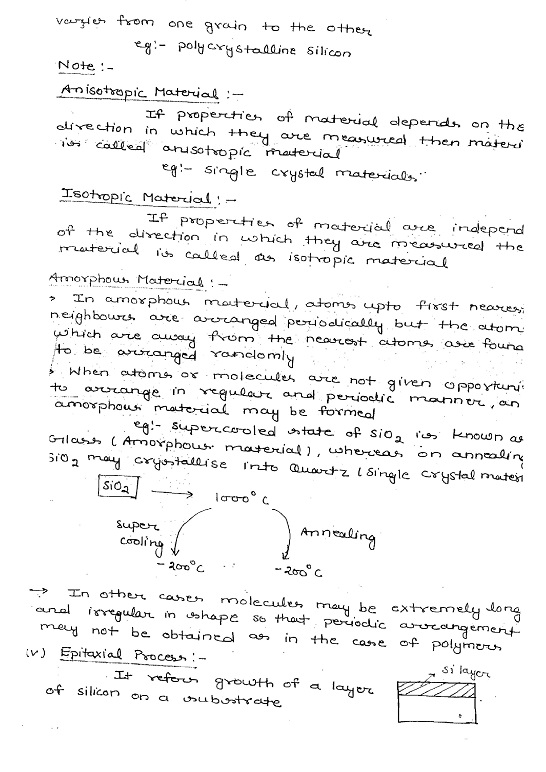 varies from one grain to the other
eg:- polycrystalline silicon
Note:-
Anisotropic Material:-
If properties of material depends on the
direction in which they are measured then materi
is called anisotropic material
eg:- single crystal materials
Isotropic Material:-
If properties of material are independ
of the direction in which they are measured the
material is called as isotropic material
Amorphous Material:-
> In amorphous material, atoms upto first neares
neighbours are arranged periodically but the atom
which are away from the nearest atoms are found
to be arranged randomly
> When atoms or molecules are not given opportuni
to arrange in regular and periodic manner, an
amorphous material may be formed
eg:- supercooled state of SiO2 is known as
Glass (Amorphous material), whereas on annealing
SiO2 may crystallise into Quartz (single crystal materi
SiO2 → 1000°C
Super
cooling
Annealing
-200°C
-200°C
→ In other cases molecules may be extremely long
and irregular in shape so that periodic arrangement
may not be obtained as in the case of polymers
(v) Epitaxial Process:-
It refers growth of a layer
of silicon on a substrate
Si layer